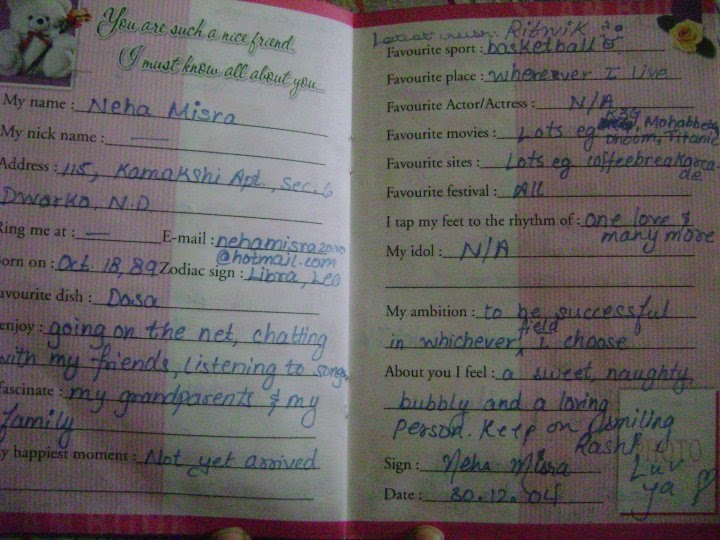 You are such a nice friend,
I must know all about you...
My name : Neha Misra
My nick name : —
Address : 115, Kamakshi Apt., Sec. 6
Dwarka, N.D.
Ring me at : — E-mail : nehamisra2000
@hotmail.com
orn on : Oct. 18, 89 Zodiac sign : Libra, Leo
avourite dish : Dosa
enjoy : going on the net, chatting
with my friends, listening to songs,
fascinate : my grandparents & my
family
y happiest moment : Not yet arrived
crush: Ritwik
Favourite sport : basketball
Favourite place : wherever I live
Favourite Actor/Actress : N/A
Favourite movies : Lots eg K3G, Mohabbetein
Dhoom, Titanic
Favourite sites : Lots eg coffeebreakarca
de
Favourite festival : All
I tap my feet to the rhythm of : one love &
many more
My idol : N/A
My ambition : to be successful
in whichever field I choose
About you I feel : a sweet, naughty,
bubbly and a loving
person. Keep on smiling
Rashi
PHOTO
Luv
ya
Sign : Neha Misra
Date : 30.12.04